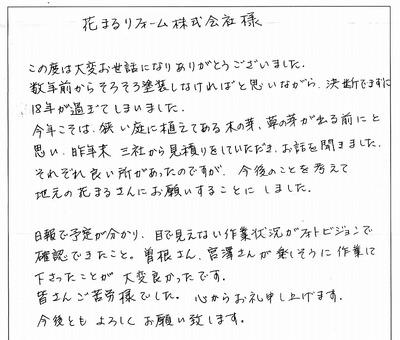 花まるリフォーム株式会社様
この度は大変お世話になりありがとうございました。
数年前からそろそろ塗装しなければと思いながら、決断できずに
18年が過ぎてしまいました。
今年こそは、狭い庭に植えてある木の芽、草の芽が出る前にと
思い、昨年末 三社から見積りをしていただき、お話を聞きました。
それぞれ良い所があったのですが、今後のことを考えて
地元の花まるさんにお願いすることに しました。
日報で予定が分かり、目で見えない作業状況がフォトビジョンで
確認できたこと。曽根さん、宮澤さんが楽しそうに作業して
下さったことが 大変良かったです。
皆さんご苦労様でした。心からお礼申し上げます。
今後とも よろしく お願い致します。